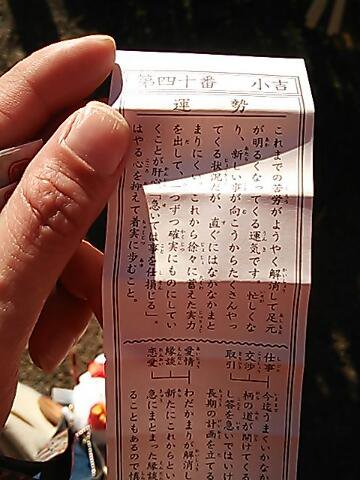 第四十番 小吉
運勢
これまでの苦労がようやく解消して足元
が明るくなってくる運気です。忙しくな
り、新しい事が向こうからたくさんやっ
てくる状況だが、直ぐにはなかなかまと
まりにくい。これから徐々に蓄えた実力
を出して、一つずつ確実にものにしてい
くことが肝心「急いては事を仕損じる」。
はやる心を抑えて着実に歩むこと。
仕事
交渉
取引
今迄うまくいかなか
柄の道が開けてくる
し答を急いではいけ
長期の計画を立てる
愛情
縁談
恋愛
わだかまりが解消し
新たにこれからとい
急にまとまった縁談
ることもあるので慎